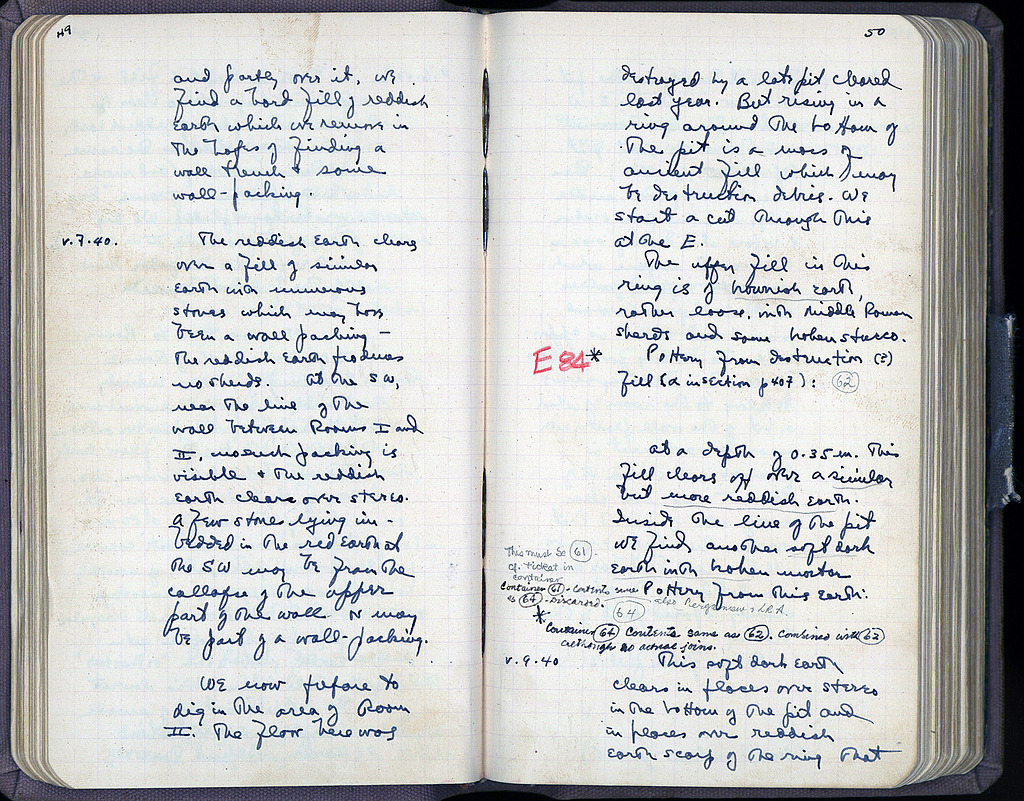 49
and partly over it, we
find a hard fill of reddish
earth which we remove in
the hopes of finding a
wall trench & some
wall-packing
v.7.40. The reddish earth clears
over a fill of similar
earth with numerous
stones which may have
been a wall packing –
the reddish earth produces
no sherds. At the SW,
near the line of the
wall between Rooms I and
II, no such packing is
visible & the reddish
earth clears over stereo.
A few stones lying im-
bedded in the red earth at
the SW may be from the
collapse of the upper
part of the wall or may
be part of a wall-packing.
We now prepare to
dig in the area of Room
II. The floor here was
50
destroyed by a late pit cleared
last year. But rising in a
ring around the bottom of
the pit is a mass of
ancient fill which may
be destruction debris. We
start a cut through this
at the E.
The upper fill in this
ring is of brownish earth,
rather loose, with Middle Roman
sherds and some broken stucco.
E 84* Pottery from destruction (?)
fill (α in section p 407): 62
at a depth of 0.35 m. this
fill clears off over a similar
but more reddish earth.
Inside the line of the pit
we find another soft dark
earth with broken mortar
This must be 61.
cf. ticket in
container
Pottery from this earth:
Container 61 - contents same
as 64 - Discarded.
also Pergamene & L.R.A.
64
* Container 64 contents same as 62. Combined with 62
although no actual joins.
v.9.40 This soft dark earth
clears in places over stereo
in the bottom of the pit and
in places over reddish
earth scarp of the ring that